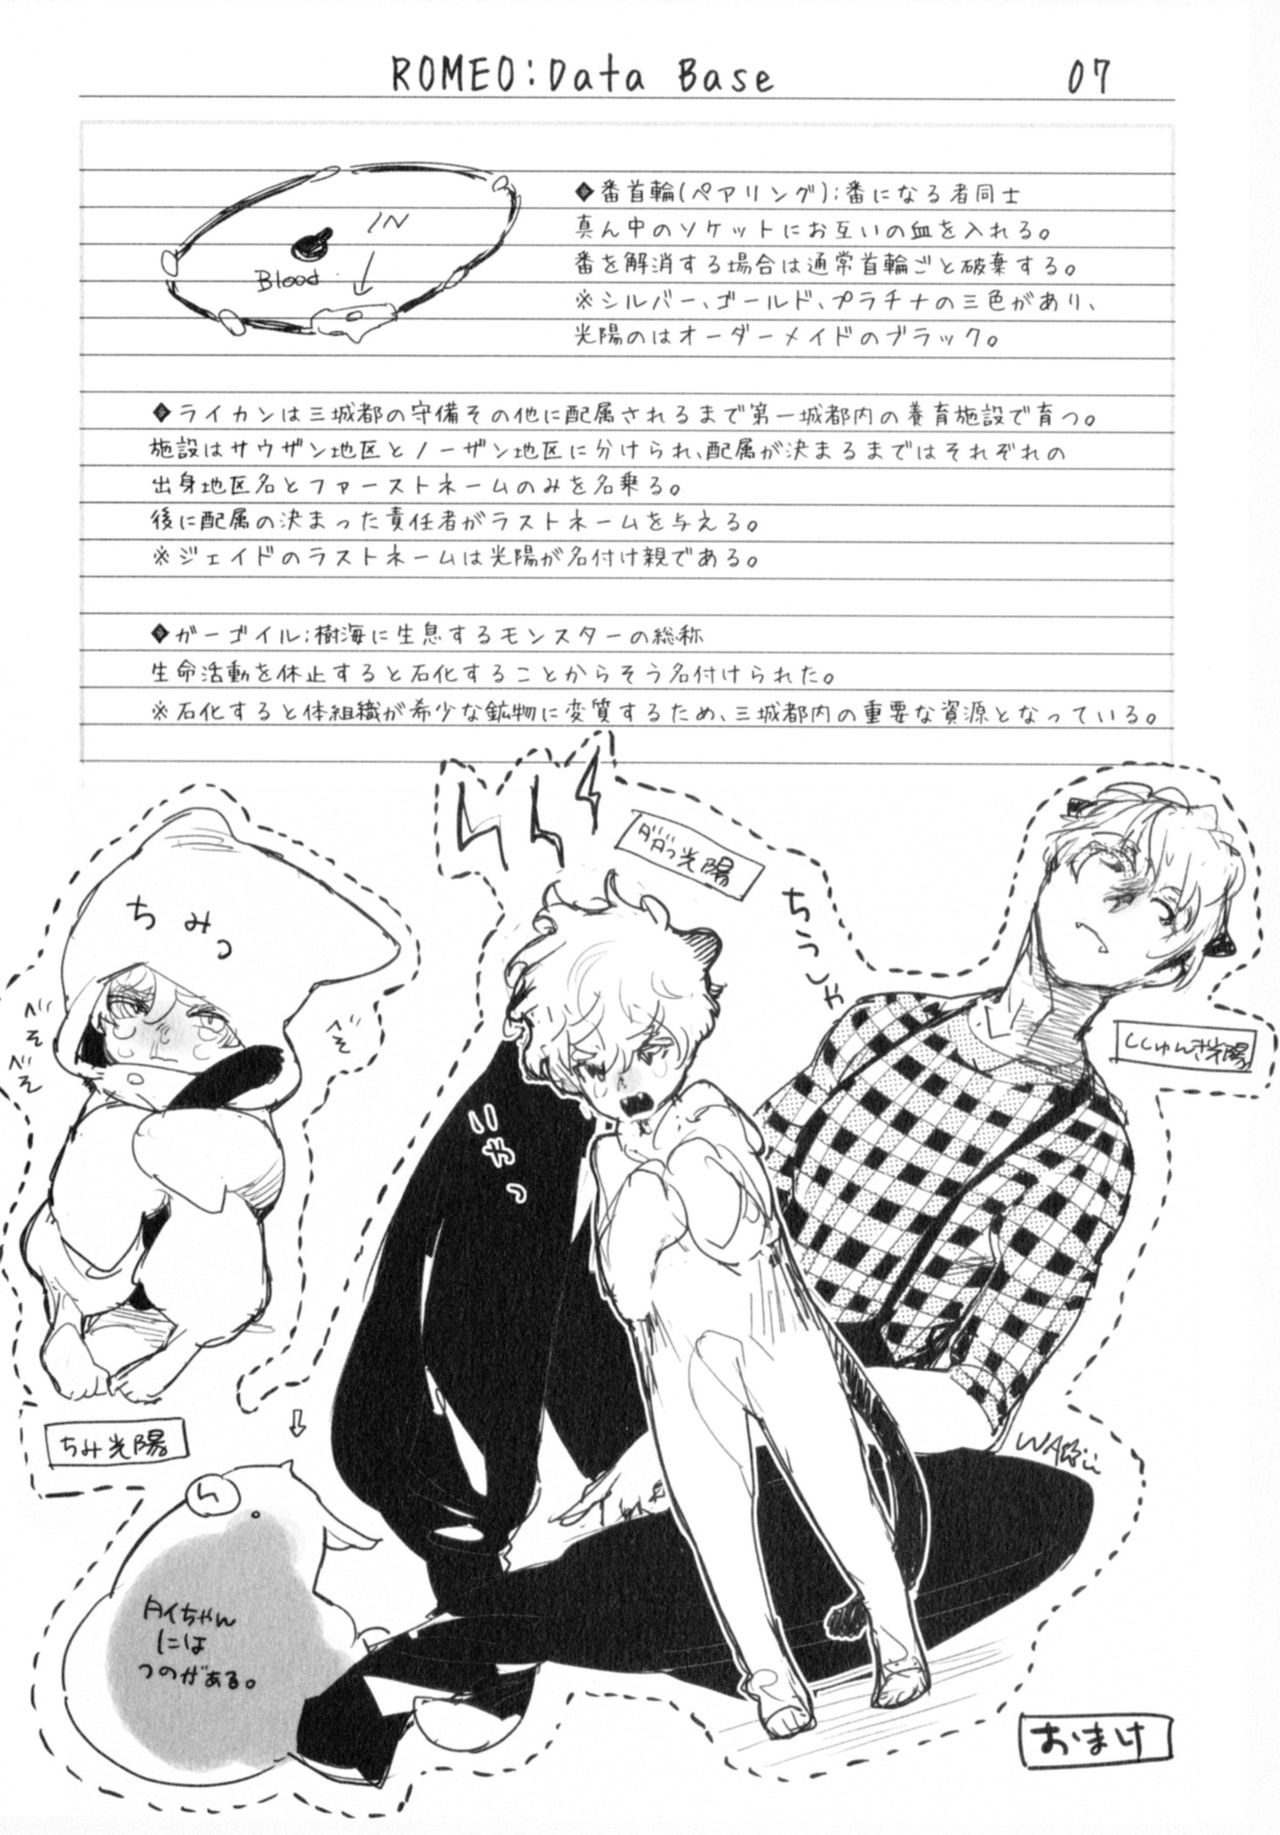 ROMEO:Data Base
07
IN
Blood
◆番首輪(ペアリング);番になる者同士
真ん中のソケットにお互いの血を入れる。
番を解消する場合は通常首輪ごと破棄する。
※シルバー、ゴールド、プラチナの三色があり、
光陽のはオーダーメイドのブラック。
◆ライカンは三城都の守備その他に配属されるまで第一城都内の養育施設で育つ。
施設はサウザン地区とノーザン地区に分けられ、配属が決まるまではそれぞれの
出身地区名とファーストネームのみを名乗る。
後に配属の決まった責任者がラストネームを与える。
※ジェイドのラストネームは光陽が名付け親である。
◆ガーゴイル;樹海に生息するモンスターの総称
生命活動を休止すると石化することからそう名付けられた。
※石化すると体組織が希少な鉱物に変質するため、三城都内の重要な資源となっている。
ちみっ
べそ
べそ
ちみ光陽
ダダっ光陽
いやっ
ししゅんき光陽
タイちゃん
には
つのがある。
おまけ